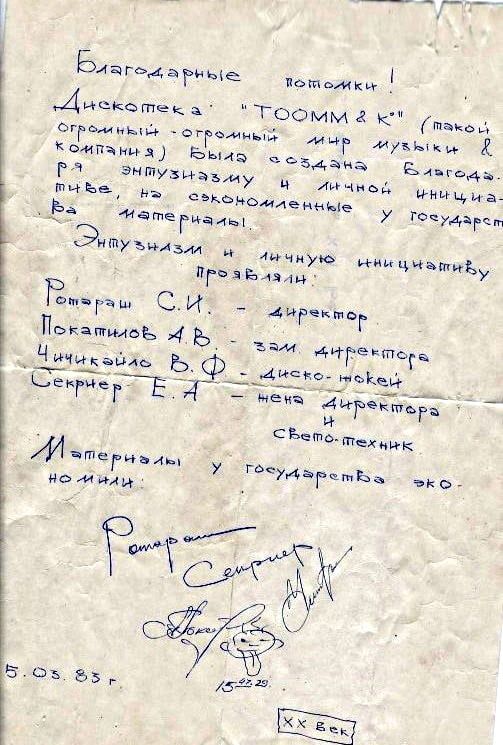 Благодарные потомки!
Дискотека "ТООММ & К°" (такой
огромный-огромный мир музыки &
компания) была создана благода-
ря энтузиазму и личной инициа-
тиве, на сэкономленные у государст
ва материалы.
Энтузиазм и личную инициативу
проявляли:
Ротараш С.И. - директор
Покатилов А.В. - зам. директора
Чичикайло В.Ф - диско-жокей
Секриер Е.А - жена директора
и
свето-техник
Материалы у государства эко-
номили:
Ротараш
Секриер
5.03.83 г.
15 47.29.
XX век